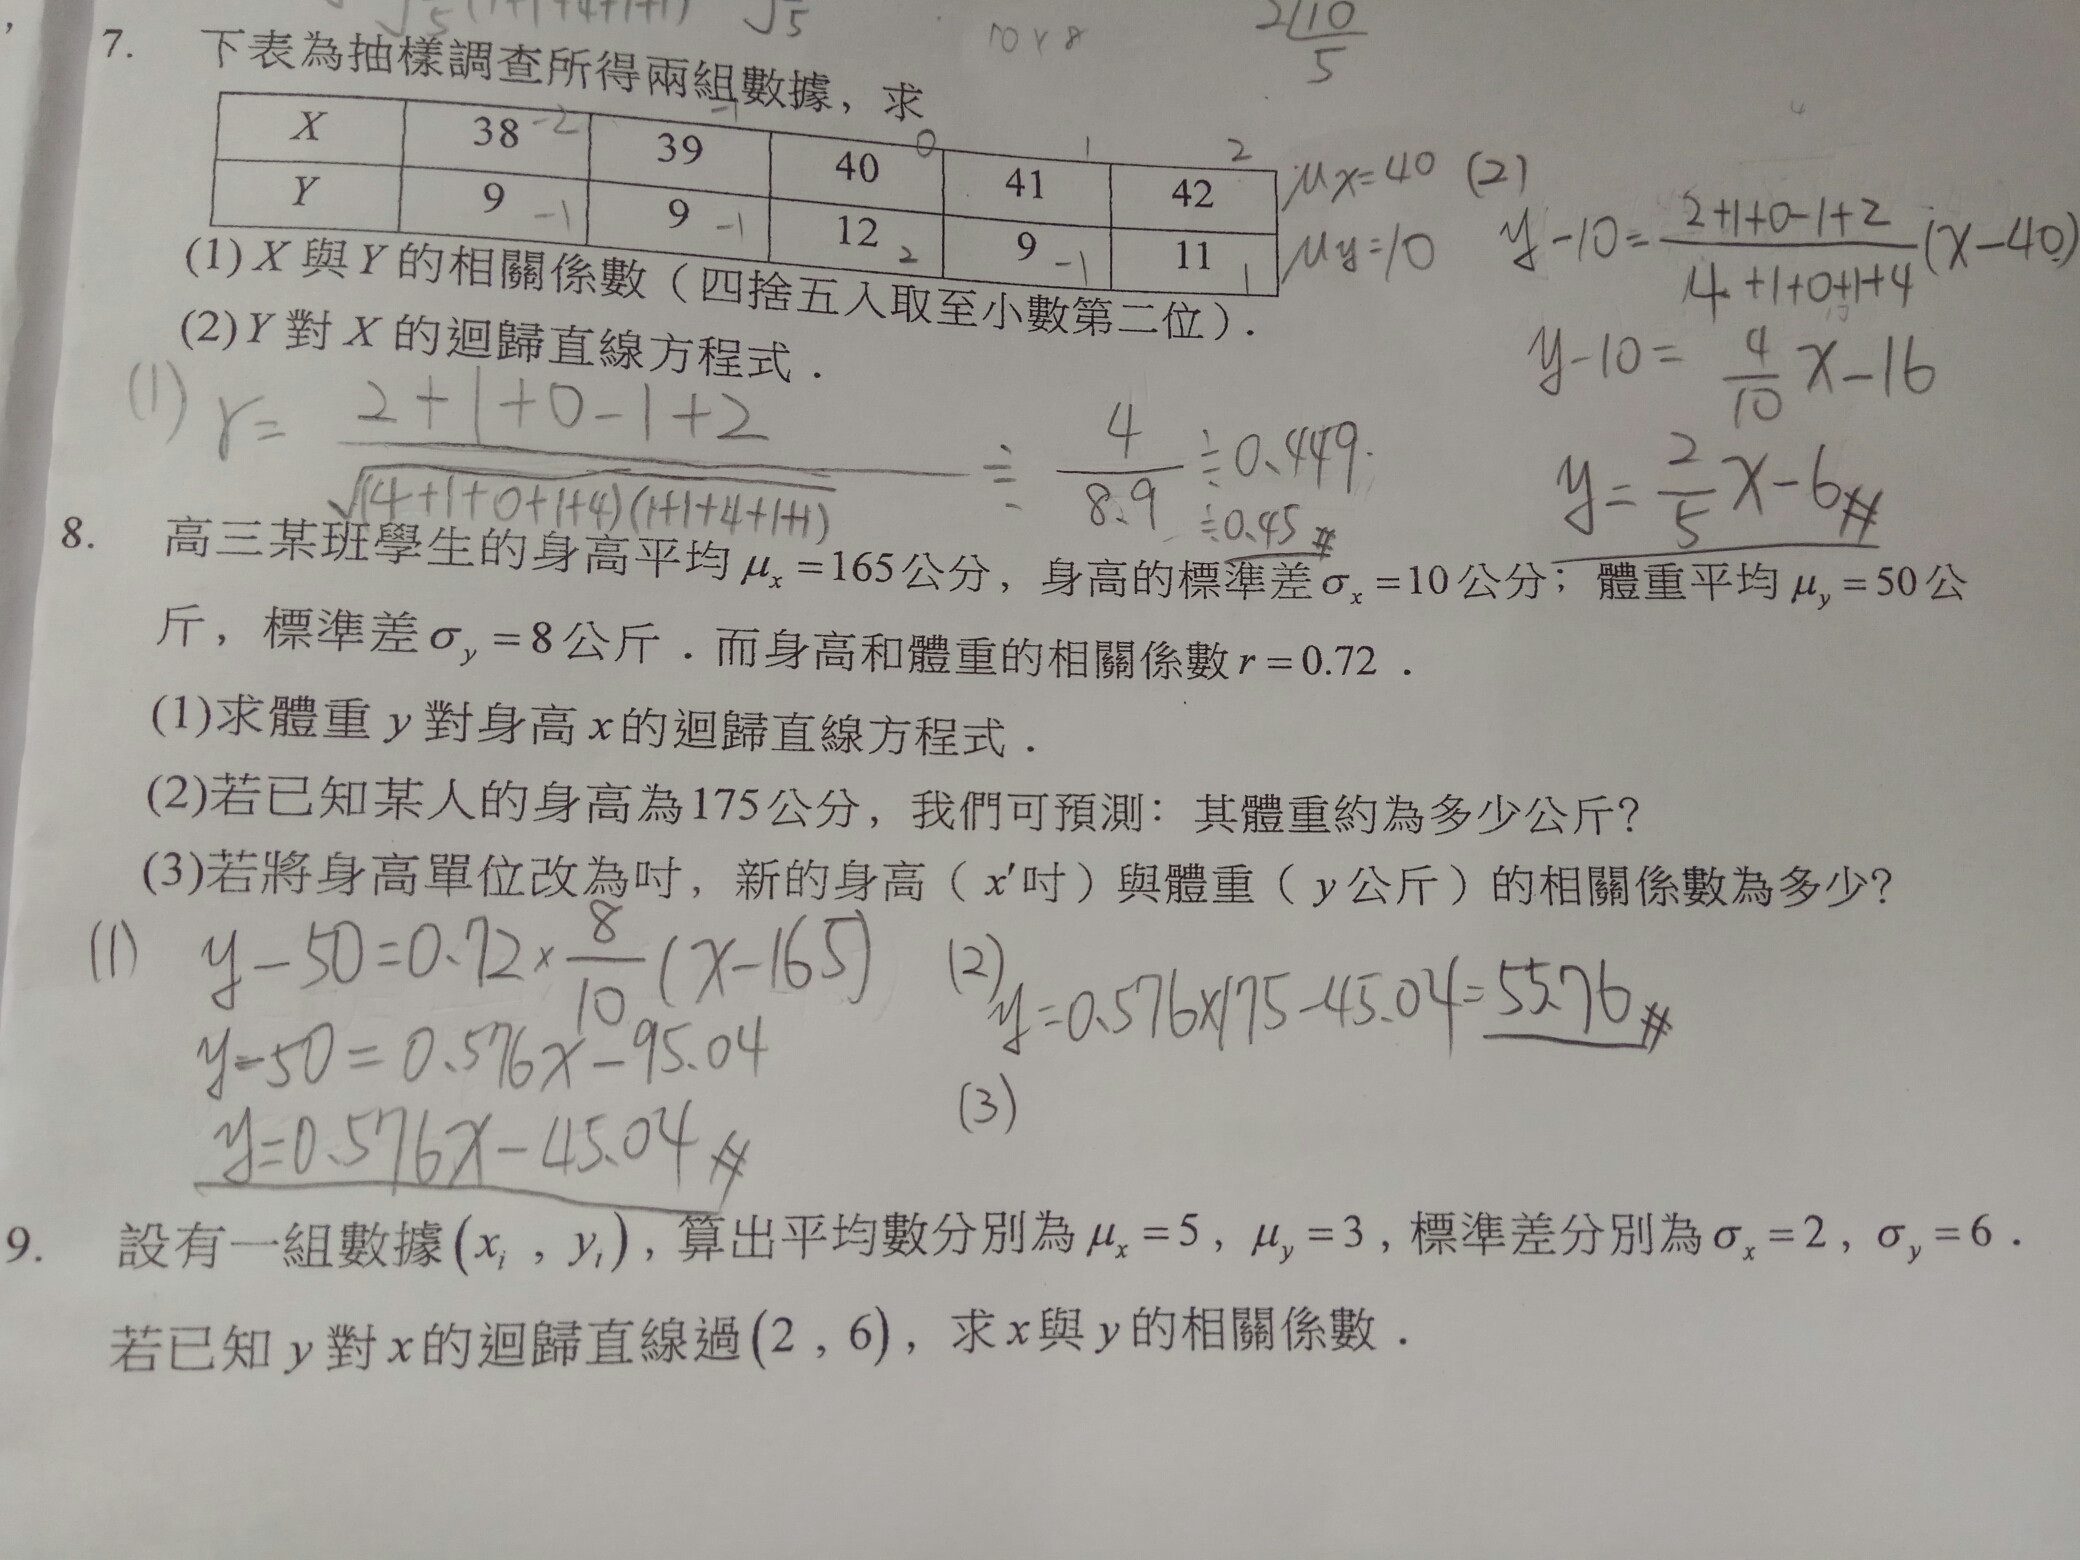 √1/5(1+1+4+1+1) √5
10×8
2√10/5
7. 下表為抽樣調查所得兩組數據，求
X 38 -2 39 -1 40 0 41 1 42 2 μx=40
Y 9 -1 9 -1 12 2 9 -1 11 1 μy=10
(1) X 與 Y 的相關係數（四捨五入取至小數第二位）．
(2) Y 對 X 的迴歸直線方程式．
(2)
y-10= (2+1+0-1+2)/(4+1+0+1+4) (x-40)
y-10= 4/10 x-16
y= 2/5 x-6 #
(1) r= (2+1+0-1+2)/√(4+1+0+1+4)(1+1+4+1+1) ≒ 4/8.9 ≒0.449
≒0.45 #
8. 高三某班學生的身高平均 μx =165公分，身高的標準差 σx =10公分；體重平均 μy =50公
斤，標準差 σy =8公斤．而身高和體重的相關係數 r=0.72．
(1)求體重 y 對身高 x 的迴歸直線方程式．
(2)若已知某人的身高為175公分，我們可預測：其體重約為多少公斤？
(3)若將身高單位改為吋，新的身高（x′吋）與體重（y公斤）的相關係數為多少？
(1) y-50=0.72× 8/10 (x-165)
y-50=0.576x-95.04
y=0.576x-45.04 #
(2) y=0.576×175-45.04=55.76 #
(3)
9. 設有一組數據(xi , yi)，算出平均數分別為 μx =5，μy =3，標準差分別為 σx =2，σy =6．
若已知 y 對 x 的迴歸直線過(2 , 6)，求 x 與 y 的相關係數．